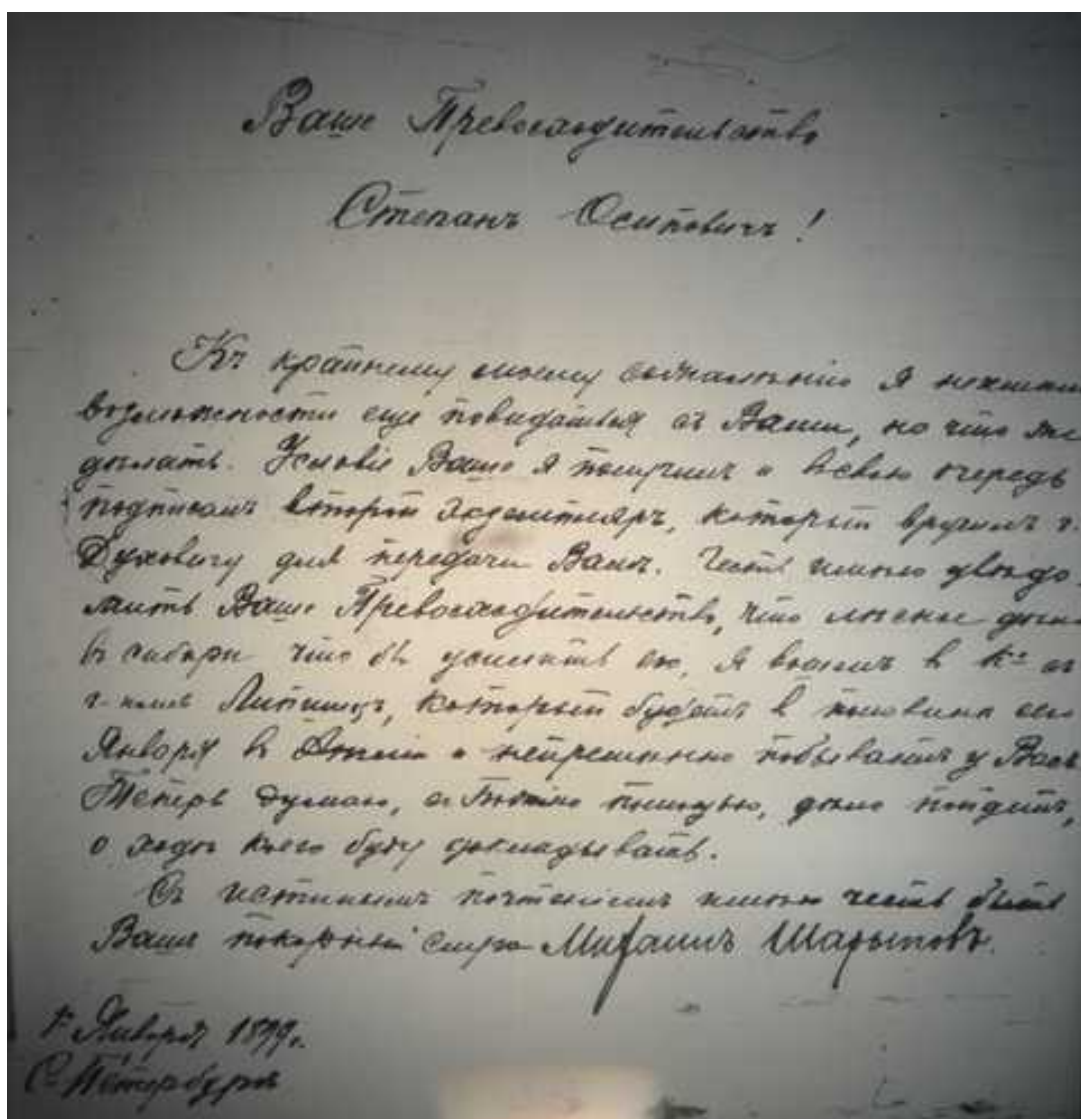 Ваше Превосходительство
Степанъ Осиповичъ!
Къ крайнему моему сожалѣнію я неимѣлъ
возможности еще повидаться съ Вами, но что же
дѣлать. Условіе Ваше я получилъ и всвою очередь
подписалъ второй экземпляръ, который вручилъ г.
Духовичу для передачи Вамъ. Честь имѣю увѣдо-
мить Ваше Превосходительство, что дѣло
въ сибири что бъ усилить его, я вошелъ в Ко съ
г-номъ Липинъ, который будетъ в половинѣ сего
Января в и непременно побываетъ у Васъ
Теперь думаю, съ Божіею помощью, дѣло пойдетъ,
о ходѣ коего буду докладывать.
Съ истиннымъ почтеніемъ имѣю честь быть
Вашъ покорный слуга Шарыповъ.
Января 1899г.
С-Петербургъ